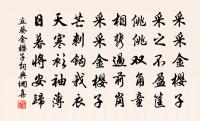 采采金櫻子
采之不盈筐
佻佻双角童
相携過前岡
采采金櫻子
芒刺鈎我衣
天寒衫袖薄
日暮將安歸
丘葵金櫻子詞典網喜